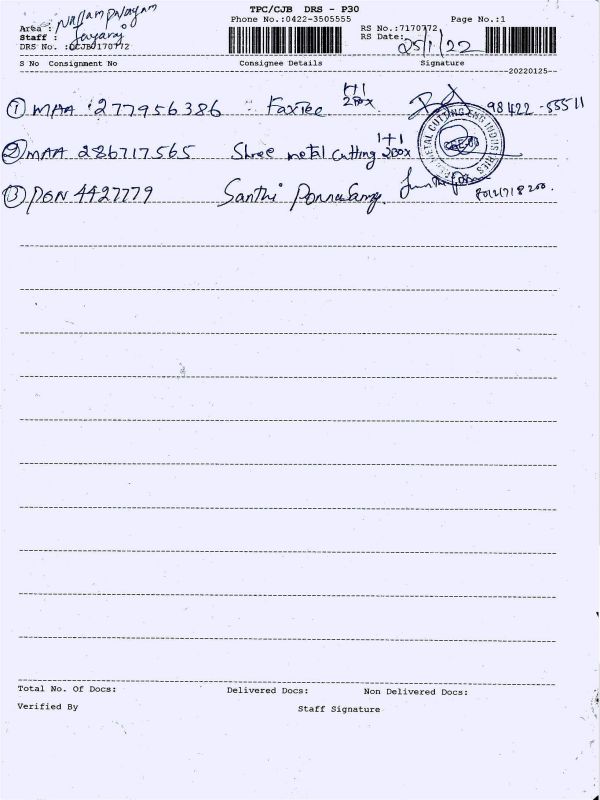 TPC/CJB DRS - P30
Phone No.:0422-3505555
Page No.:1
Area : Nallampalayam
Staff : Jayaraj
DRS No. :CJB7170772
RS No.:7170772
RS Date: 25/1/22
S No Consignment No Consignee Details Signature
20220125
① MAA 277956386 Faxtee 1+1 2Box 98422-55511
② MAA 286717565 Shree metal cutting 1+1 2Box
METAL CUTTING ENG INDUSTRIES
③ PGN 4427779 Santhi Ponnusamy
Total No. Of Docs: Delivered Docs: Non Delivered Docs:
Verified By Staff Signature